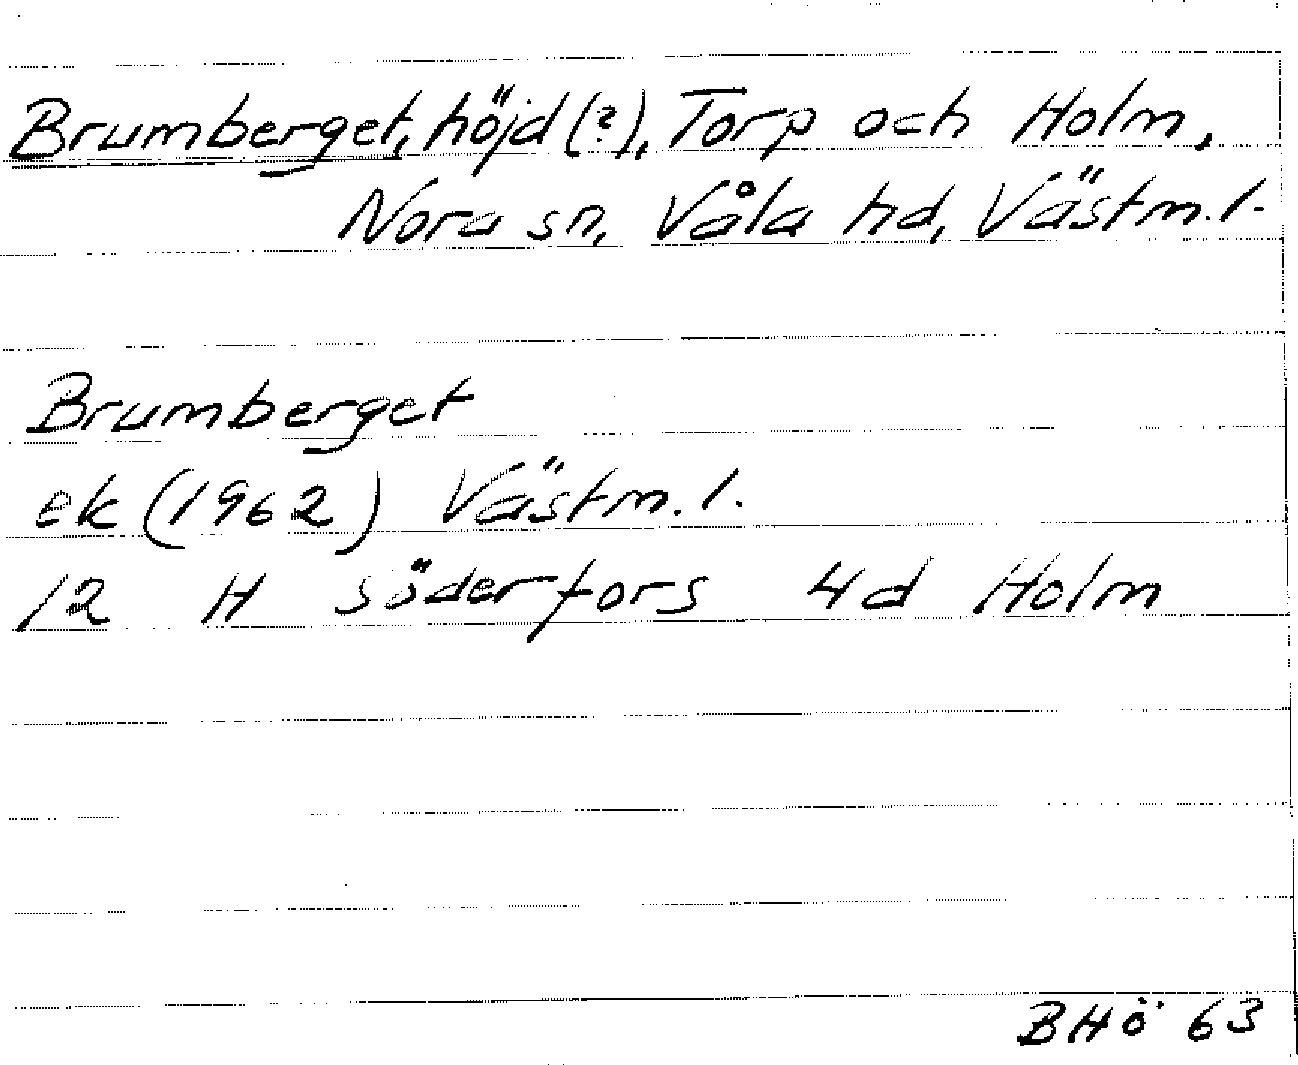 Brumberget, höjd (?), Torp och Holm,
Nora sn, Våla hd, Västm. l.
Brumberget
ek (1962) Västm. l.
12 H Söderfors 4d Holm
BHö 63